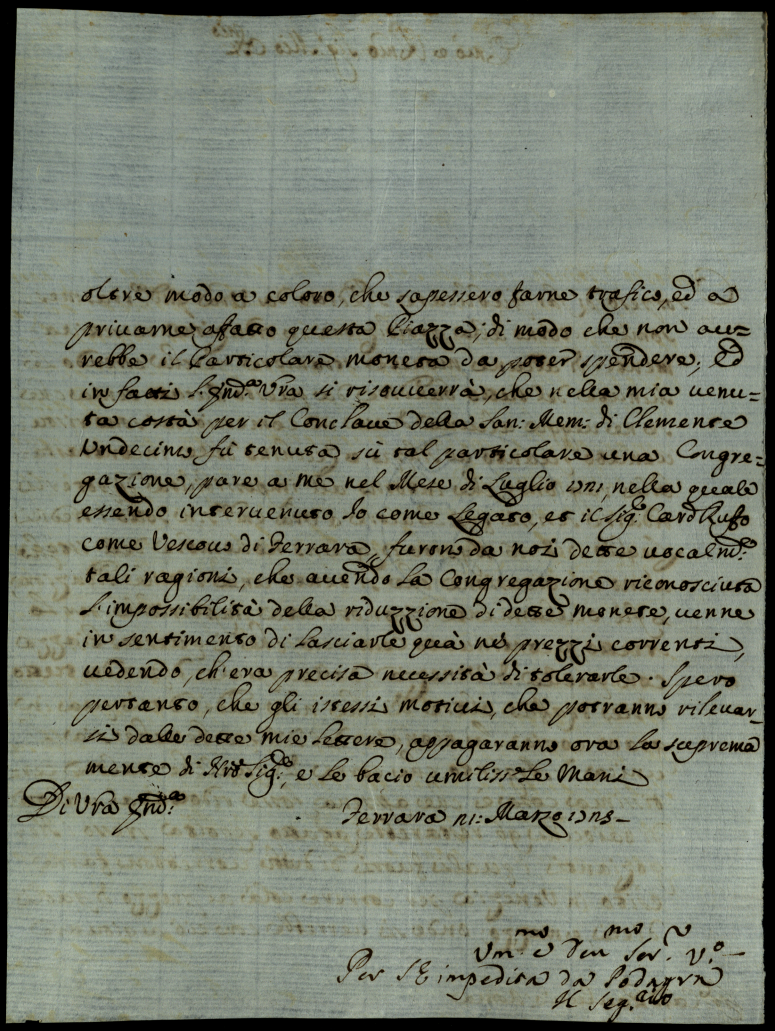 oltre modo a coloro, che sapessero farne trafico, ed a
privarne affatto questa Piazza; di modo che non av=
rebbe il Particolare moneta da poter spendere; Ed
in fatti l'Em:ª Vrã si risovverrà, che nella mia venu=
ta costà per il Conclave della San: Mem: di Clemente
Undecimo fù tenuta sù tal particolare una Congre=
gazione, pare a me nel Mese di Luglio 1721, nella quale
essendo intervenuto Io come Legato, et il Sig.r Card Ruffo
come Vescovo di Ferrara, furon da noi dette vocalm.e
tali ragioni, che avendo la Congregazione riconosciuta
l'impossibilità della riduzzione di dette monete, venne
in sentimento di lasciarle quà né prezzi correnti,
vedendo, ch'era precisa necessità di tolerarle. Spero
pertanto, che gli istessi motivi, che potranno rilevar=
si dalle dette mie lettere, appagaranno ora la suprema
mente di Nrõ Sig.re, e le bacio umiliss.e le Mani
Di Vrã Em:ª
Ferrara 21: Marzo 1725 -
Um.mo e Dev.mo Ser.r V.o -
Per S E impedita da Podagra
Il Seg.rio